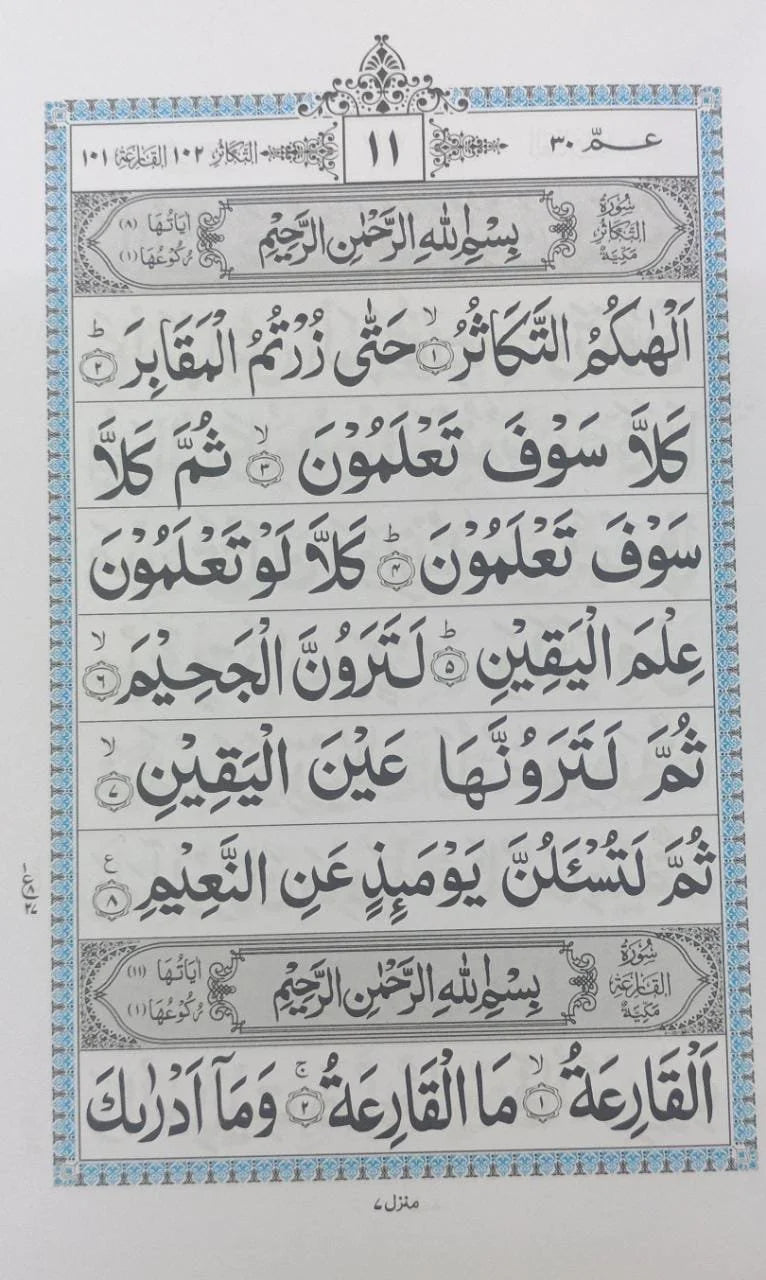 عـــمّ ٣٠
١١
التَّكَاثُر ١٠٢ القَارِعَة ١٠١
سُورَةُ التَّكَاثُرِ مَكِّيَّةٌ
بِسْمِ اللهِ الرَّحْمٰنِ الرَّحِيْمِ
اٰيَاتُهَا (٨)
رُكُوْعُهَا (١)
اَلْهٰىكُمُ التَّكَاثُرُ ۙ﴿١﴾ حَتّٰى زُرْتُمُ الْمَقَابِرَ ؕ﴿٢﴾
كَلَّا سَوْفَ تَعْلَمُوْنَ ۙ﴿٣﴾ ثُمَّ كَلَّا
سَوْفَ تَعْلَمُوْنَ ؕ﴿٤﴾ كَلَّا لَوْ تَعْلَمُوْنَ
عِلْمَ الْيَقِيْنِ ؕ﴿٥﴾ لَتَرَوُنَّ الْجَحِيْمَ ۙ﴿٦﴾
ثُمَّ لَتَرَوُنَّهَا عَيْنَ الْيَقِيْنِ ۙ﴿٧﴾
ثُمَّ لَتُسْـَٔلُنَّ يَوْمَىِٕذٍ عَنِ النَّعِيْمِ ﴿٨﴾ ع
سُورَةُ القَارِعَةِ مَكِّيَّةٌ
بِسْمِ اللهِ الرَّحْمٰنِ الرَّحِيْمِ
اٰيَاتُهَا (١١)
رُكُوْعُهَا (١)
اَلْقَارِعَةُ ۙ﴿١﴾ مَا الْقَارِعَةُ ۚ﴿٢﴾ وَمَاۤ اَدْرٰىكَ
منزل ٧